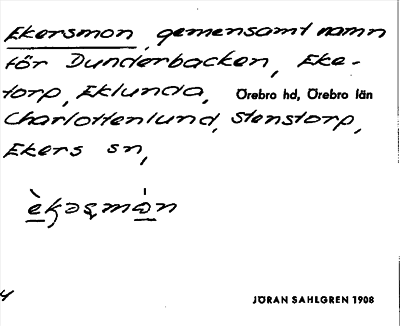 Ekersmon, gemensamt namn
för Dunderbacken, Eke-
torp, Eklunda, Örebro hd, Örebro län
Charlottenlund, Stenstorp,
Ekers sn,
èkəsmȧn
4
JÖRAN SAHLGREN 1908